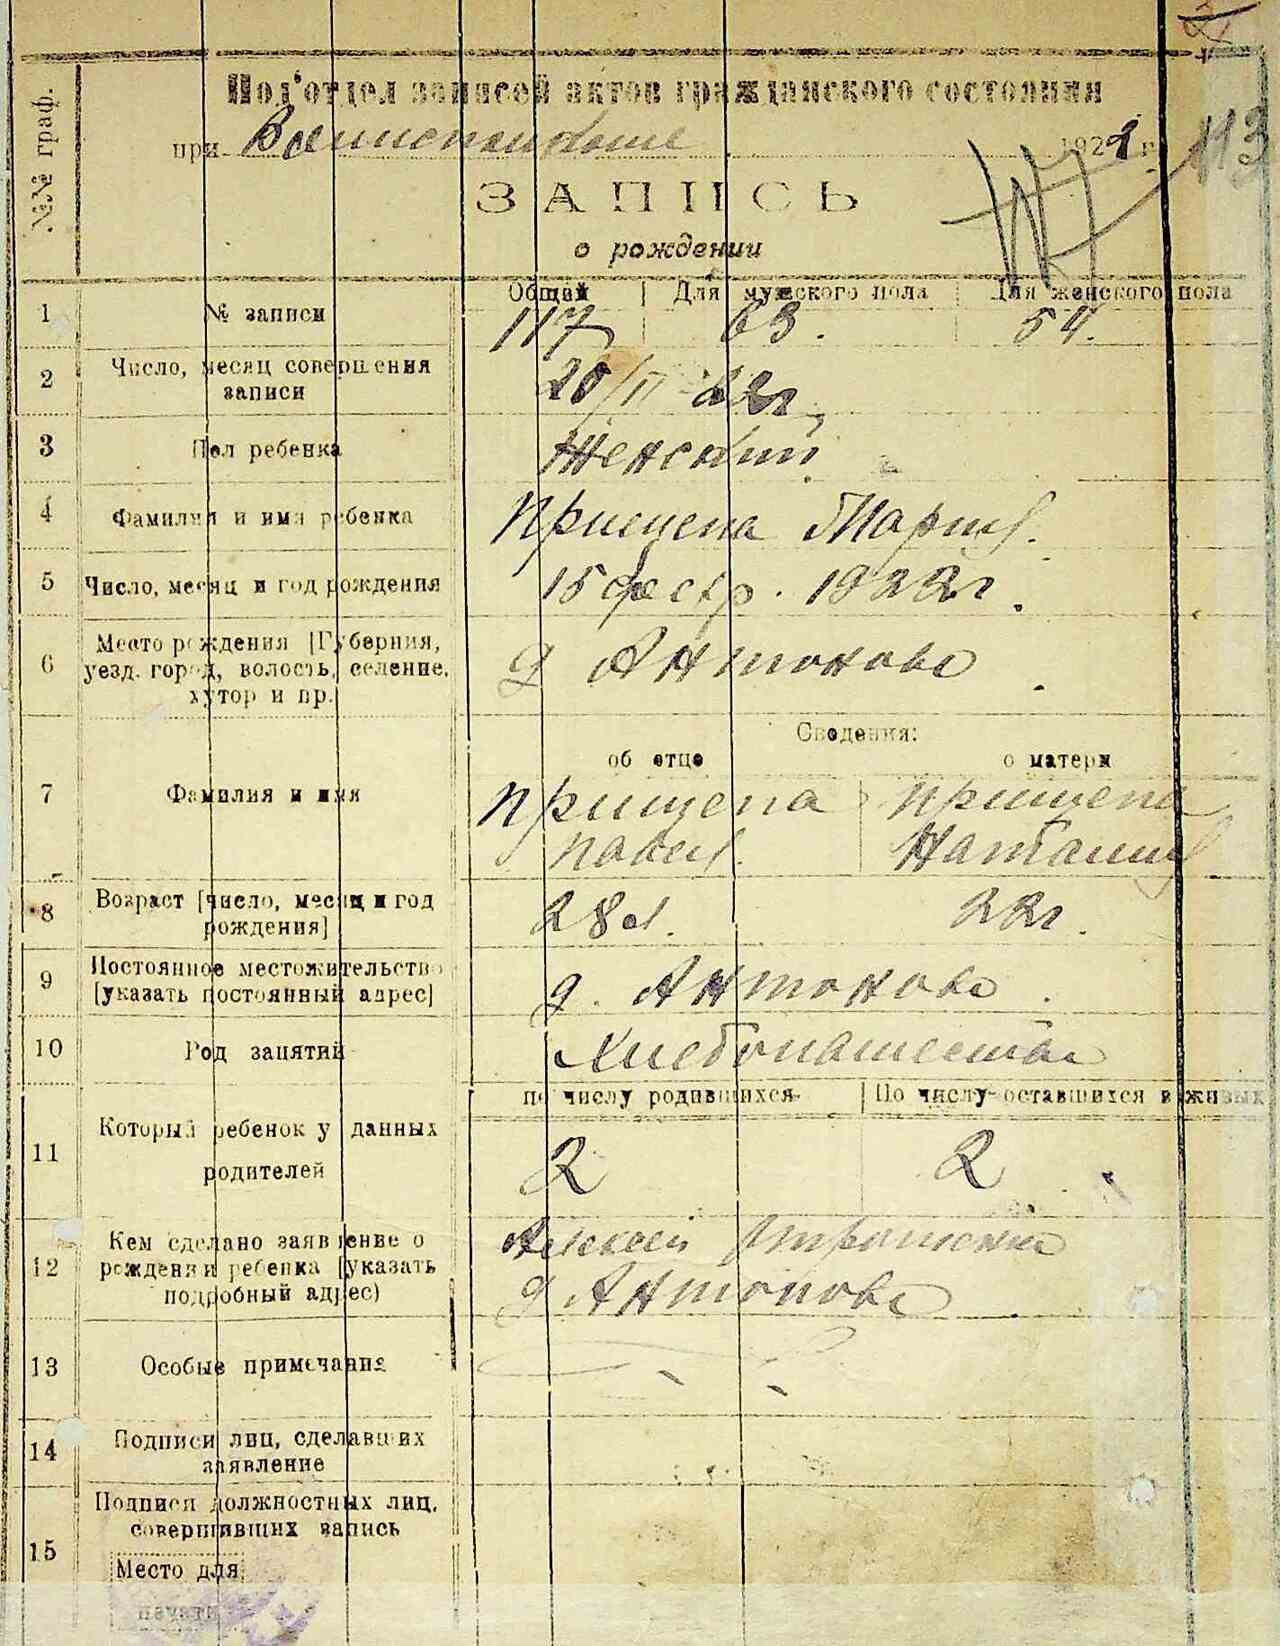 №№ граф.
Под'отдел записей актов гражданского состояния
при 1922 г.
113
ЗАПИСЬ
о рождении
Общий Для мужского пола Для женского пола
1 № записи 117 63. 54.
2 Число, месяц совершения
записи 20/II 22г.
3 Пол ребенка Женский
4 Фамилия и имя ребенка Прищепа Мария.
5 Число, месяц и год рождения 15 февр. 1922г.
6 Место рождения [Губерния,
уезд. город, волость, селение,
хутор и пр.] д Антоново.
Сведения:
об отце о матери
7 Фамилия и имя Прищепа Прищепа
Павел. Наталия
8 Возраст [число, месяц и год
рождения] 28 л. 22г.
9 Постоянное местожительство
[указать постоянный адрес] д. Антоново.
10 Род занятий Хлебопашество
по числу родившихся По числу оставшихся в живых
11 Который ребенок у данных
родителей 2 2
12 Кем сделано заявление о
рождении ребенка [указать
подробный адрес) Алексей
д Антоново.
13 Особые примечания
14 Подписи лиц, сделавших
заявление
15 Подписи должностных лиц,
совершивших запись
Место для
печати